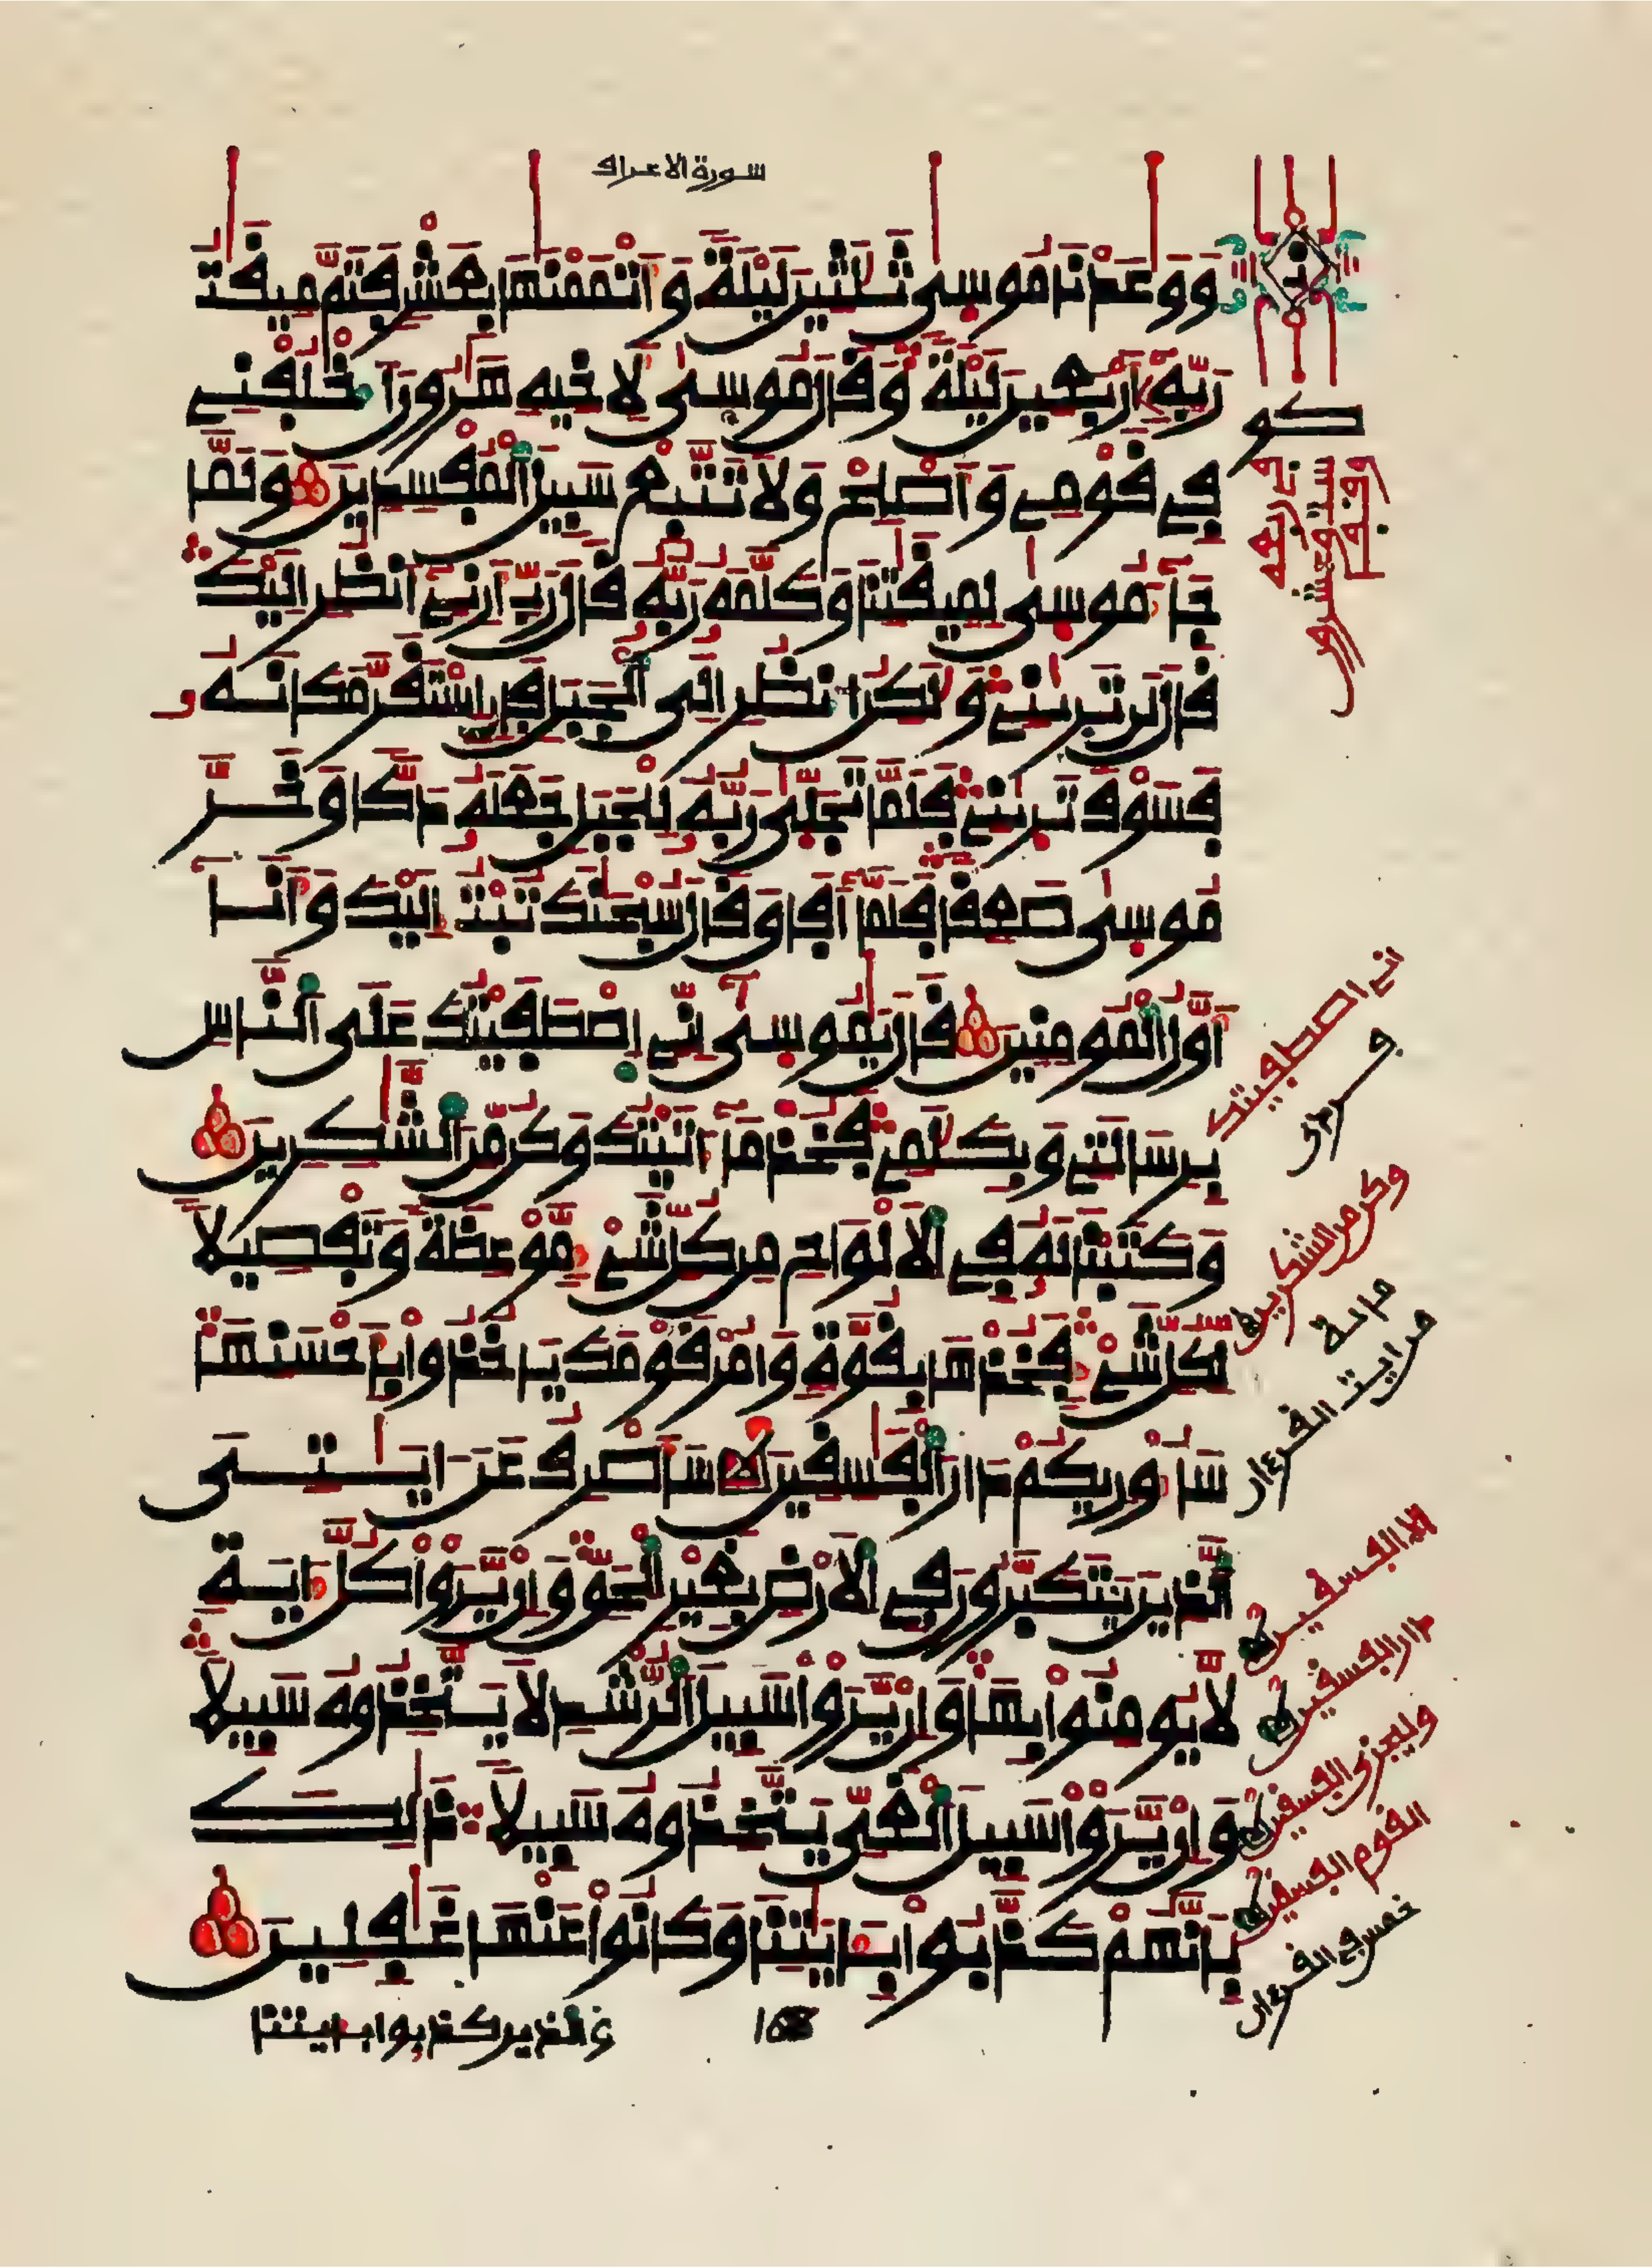 سورة الاعراف
ووعدنا موسى ثلثين ليلة واتممنها بعشر فتم ميقت
ربه اربعين ليلة وقال موسى لاخيه هرون اخلفني
في قومي واصلح ولا تتبع سبيل المفسدين ولما
جاء موسى لميقتنا وكلمه ربه قال رب ارني انظر اليك
قال لن تريني ولكن انظر الى الجبل فان استقر مكانه
فسوف تريني فلما تجلى ربه للجبل جعله دكا وخر
موسى صعقا فلما افاق قال سبحنك تبت اليك وانا
اول المومنين قال يموسى اني اصطفيتك على الناس
برسالتي وبكلمي فخذ ما اتيتك وكن من الشكرين
وكتبنا له في الالواح من كل شيء موعظة وتفصيلا
لكل شيء فخذها بقوة وامر قومك ياخذوا باحسنها
ساوريكم دار الفسقين ساصرف عن ايتي
الذين يتكبرون في الارض بغير الحق وان يروا كل اية
لا يومنوا بها وان يروا سبيل الرشد لا يتخذوه سبيلا
وان يروا سبيل الغي يتخذوه سبيلا ذلك
بانهم كذبوا بايتنا وكانوا عنها غفلين
والذين كذبوا بايتنا
168
كو
اني اصطفيتك
وكن من الشكرين
من ايت القرءان
الا الفسقين
دار الفسقين
وليخزي الفسقين
القوم الفسقين
خمس في القرءان